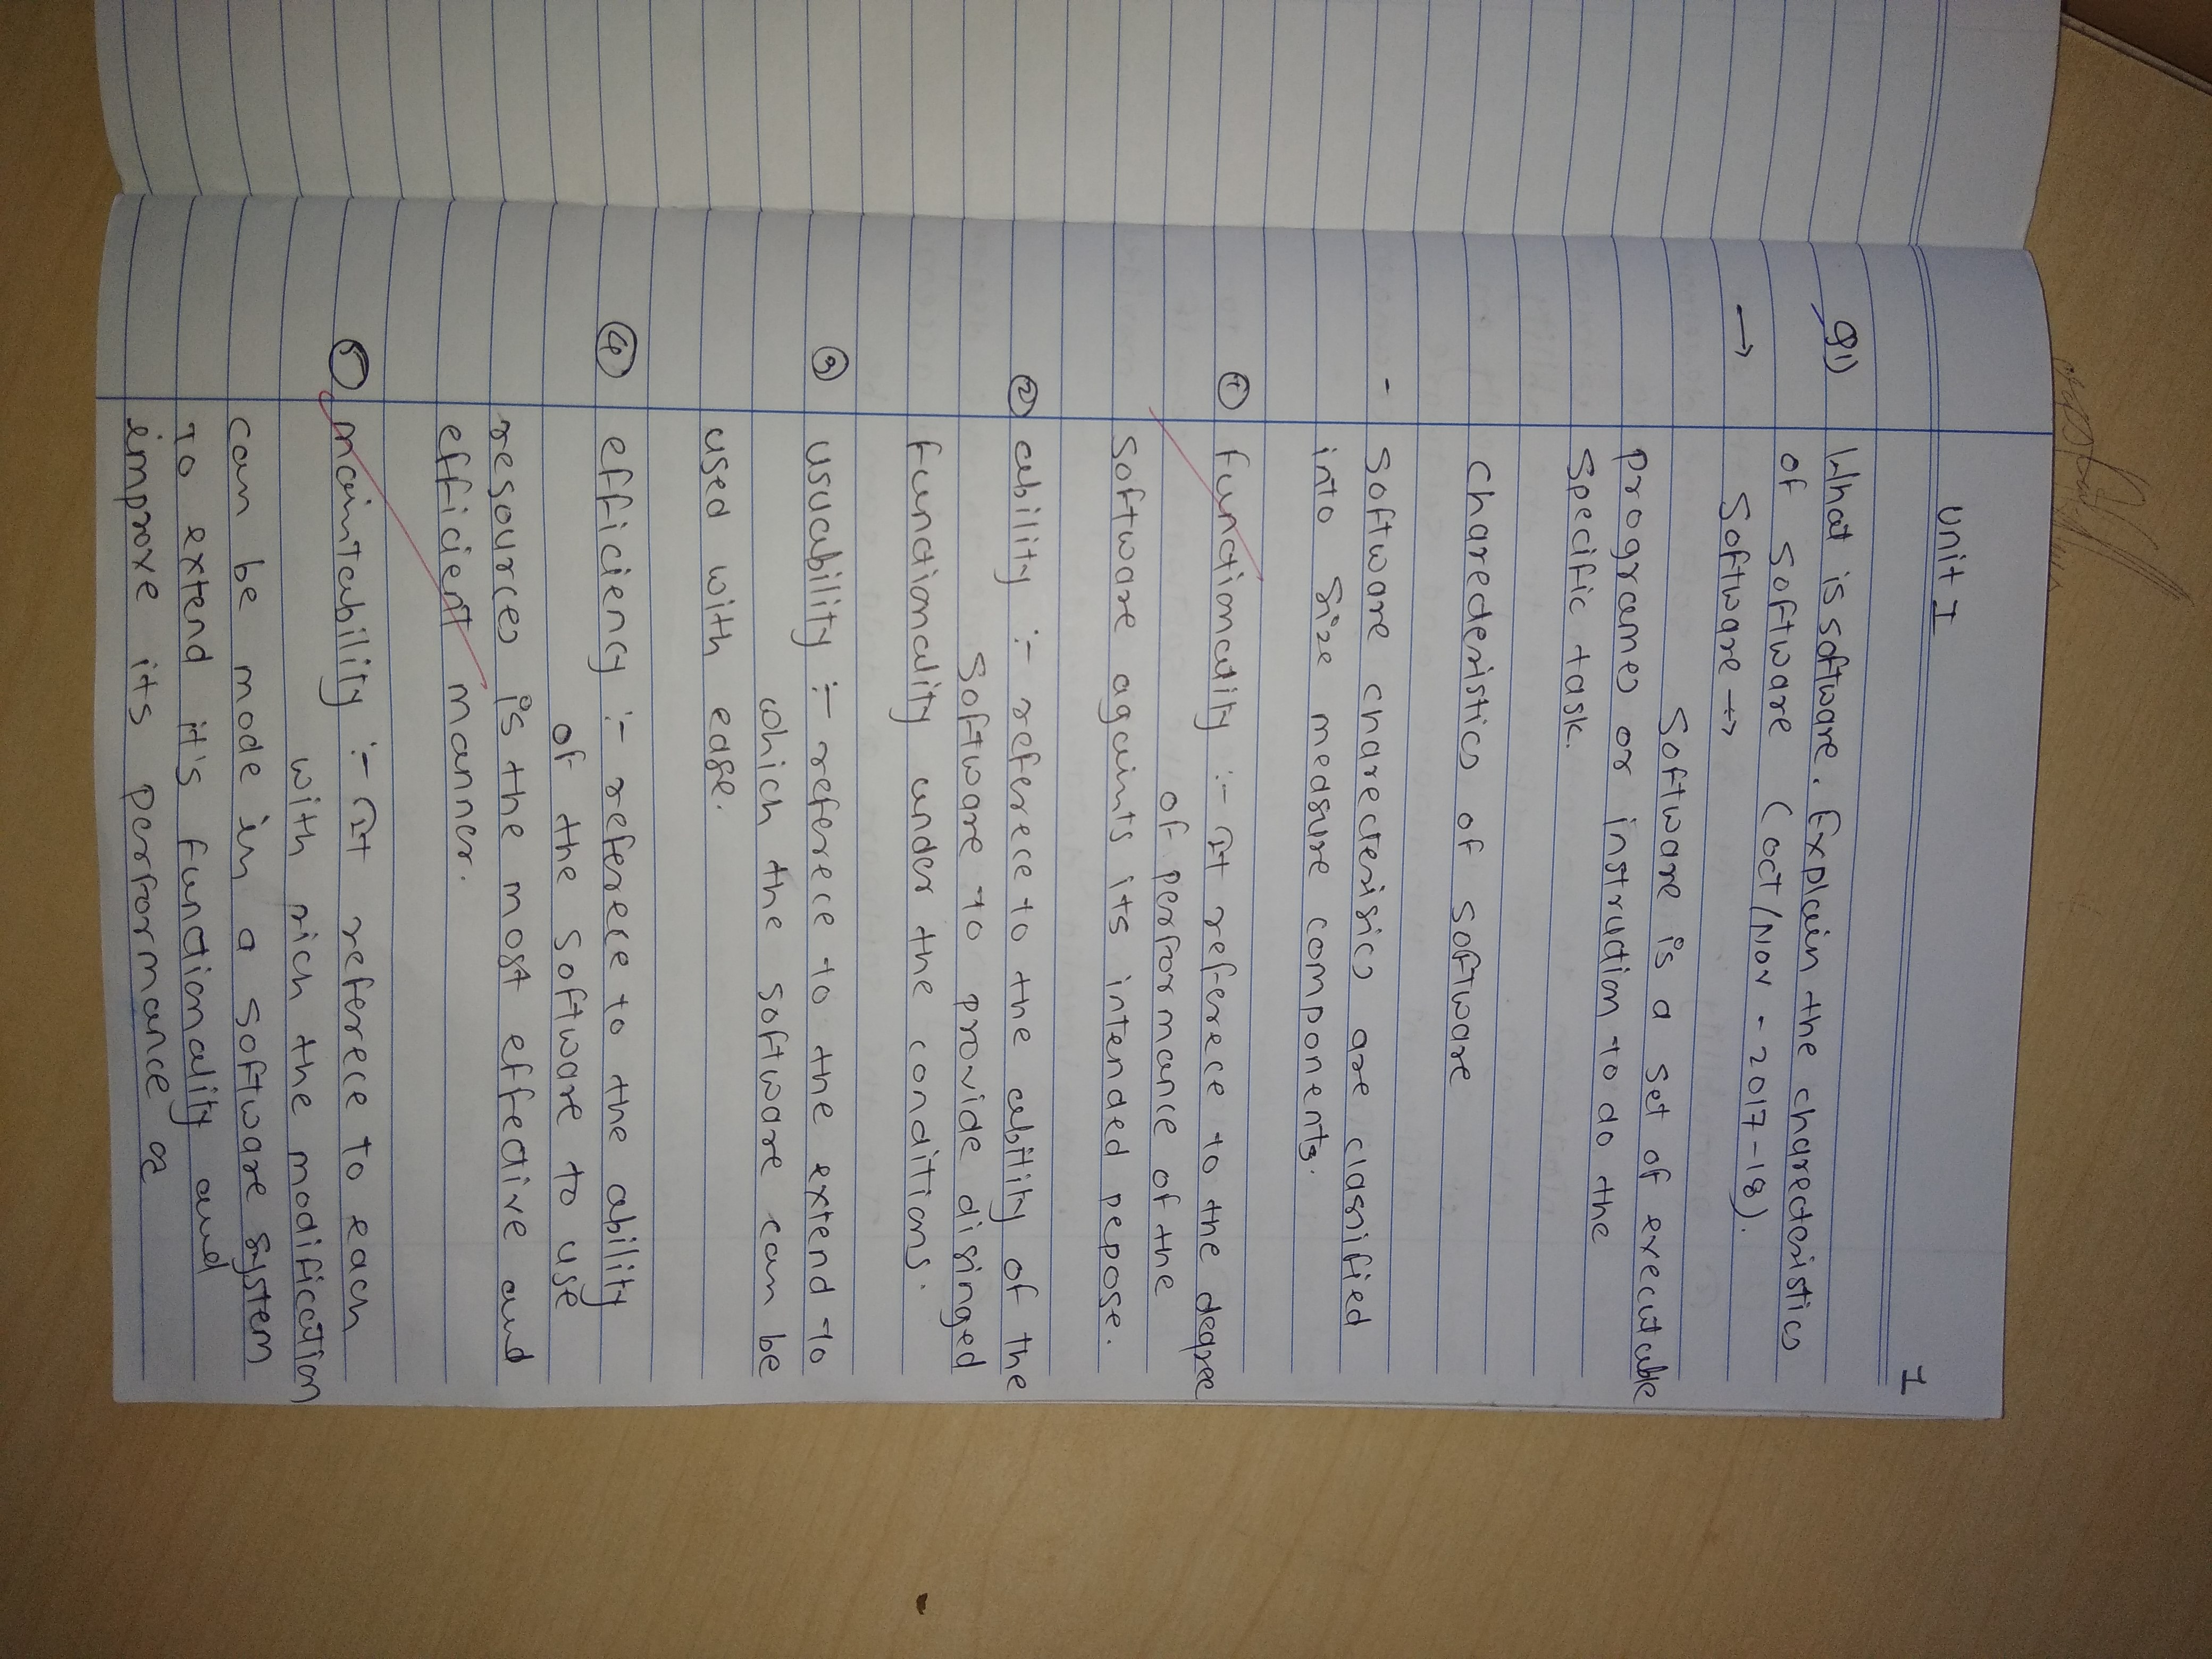 Unit I
1
Q1) What is software. Explain the charecteristics
of software (oct/Nov - 2017-18).
→ Software →
Software is a set of executable
programes or instruction to do the
specific task.
Charecteristics of software
- Software charecterisics are classified
into size measure components.
① functionality :- It referece to the degree
of performance of the
software againts its intended pepose.
② ability :- referece to the ability of the
software to provide disinged
functionality under the conditions.
③ usucability :- referece to the extend to
which the software can be
used with ease.
④ efficiency :- referece to the ability
of the software to use
resources is the most effective and
efficient manner.
⑤ maintability :- It referece to each
with rich the modification
can be mode in a software system
to extend it's functionality and
improve its performance or